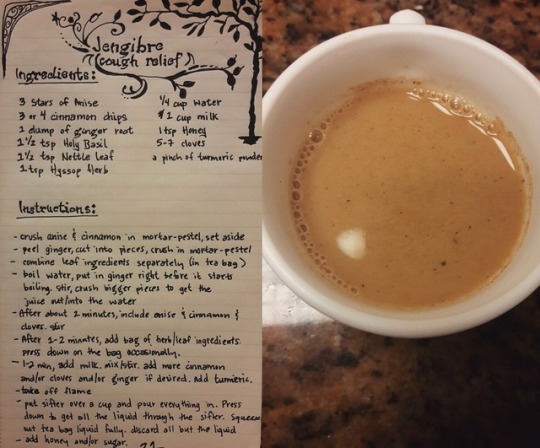 Jengibre
(cough relief)
Ingredients:
3 stars of Anise
3 or 4 cinnamon chips
1 clump of ginger root
1 1/2 tsp Holy Basil
1 1/2 tsp Nettle Leaf
1 tsp Hyssop Herb
1/4 cup water
1 cup milk
1 tsp Honey
5-7 cloves
a pinch of turmeric powder
Instructions:
- crush anise & cinnamon in mortar-pestel, set aside
- peel ginger, cut into pieces, crush in mortar-pestel
- combine leaf ingredients separately (in tea bag)
- boil water, put in ginger right before it starts
boiling. stir, crush bigger pieces to get the
juice out/into the water
- After about 2 minutes, include anise & cinnamon &
cloves. stir
- After 1-2 minutes, add bag of herb/leaf ingredients.
press down on the bag occasionally.
- 1-2 min, add milk. mix/stir. add more cinnamon
and/or cloves and/or ginger if desired. add turmeric.
- take off flame
- put sifter over a cup and pour everything in. Press
down to get all the liquid through the sifter. Squeeze
out tea bag liquid fully. discard all but the liquid
- add honey and/or sugar.